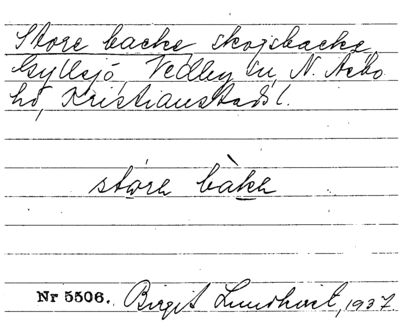 Store backe skogsbacke
Gyllsjö, Vedby sn, N. Åsbo
hd, Kristianstads l.
støre bàke
Nr 5506. Birgit Lundkvist, 1937.